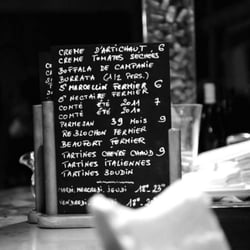 CREME D'ARTICHAUT 6
CREME TOMATES SECHÉES
BUFFALA DE CAMPANIE
BURRATA (1/2 PERS.)
ST MARCELLIN FERMIER 6
ST NECTAIRE FERMIER
COMTÉ ÉTÉ 2011
COMTÉ ÉTÉ 2010 7
PARMESAN 39 MOIS 9
REBLOCHON FERMIER
BEAUFORT FERMIER
TARTINES CHEVRE CHAUD 9
TARTINES ITALIENNES
TARTINES BOUDIN
MARDI. MERCREDI. JEUDI 18H 23H
VENDREDI